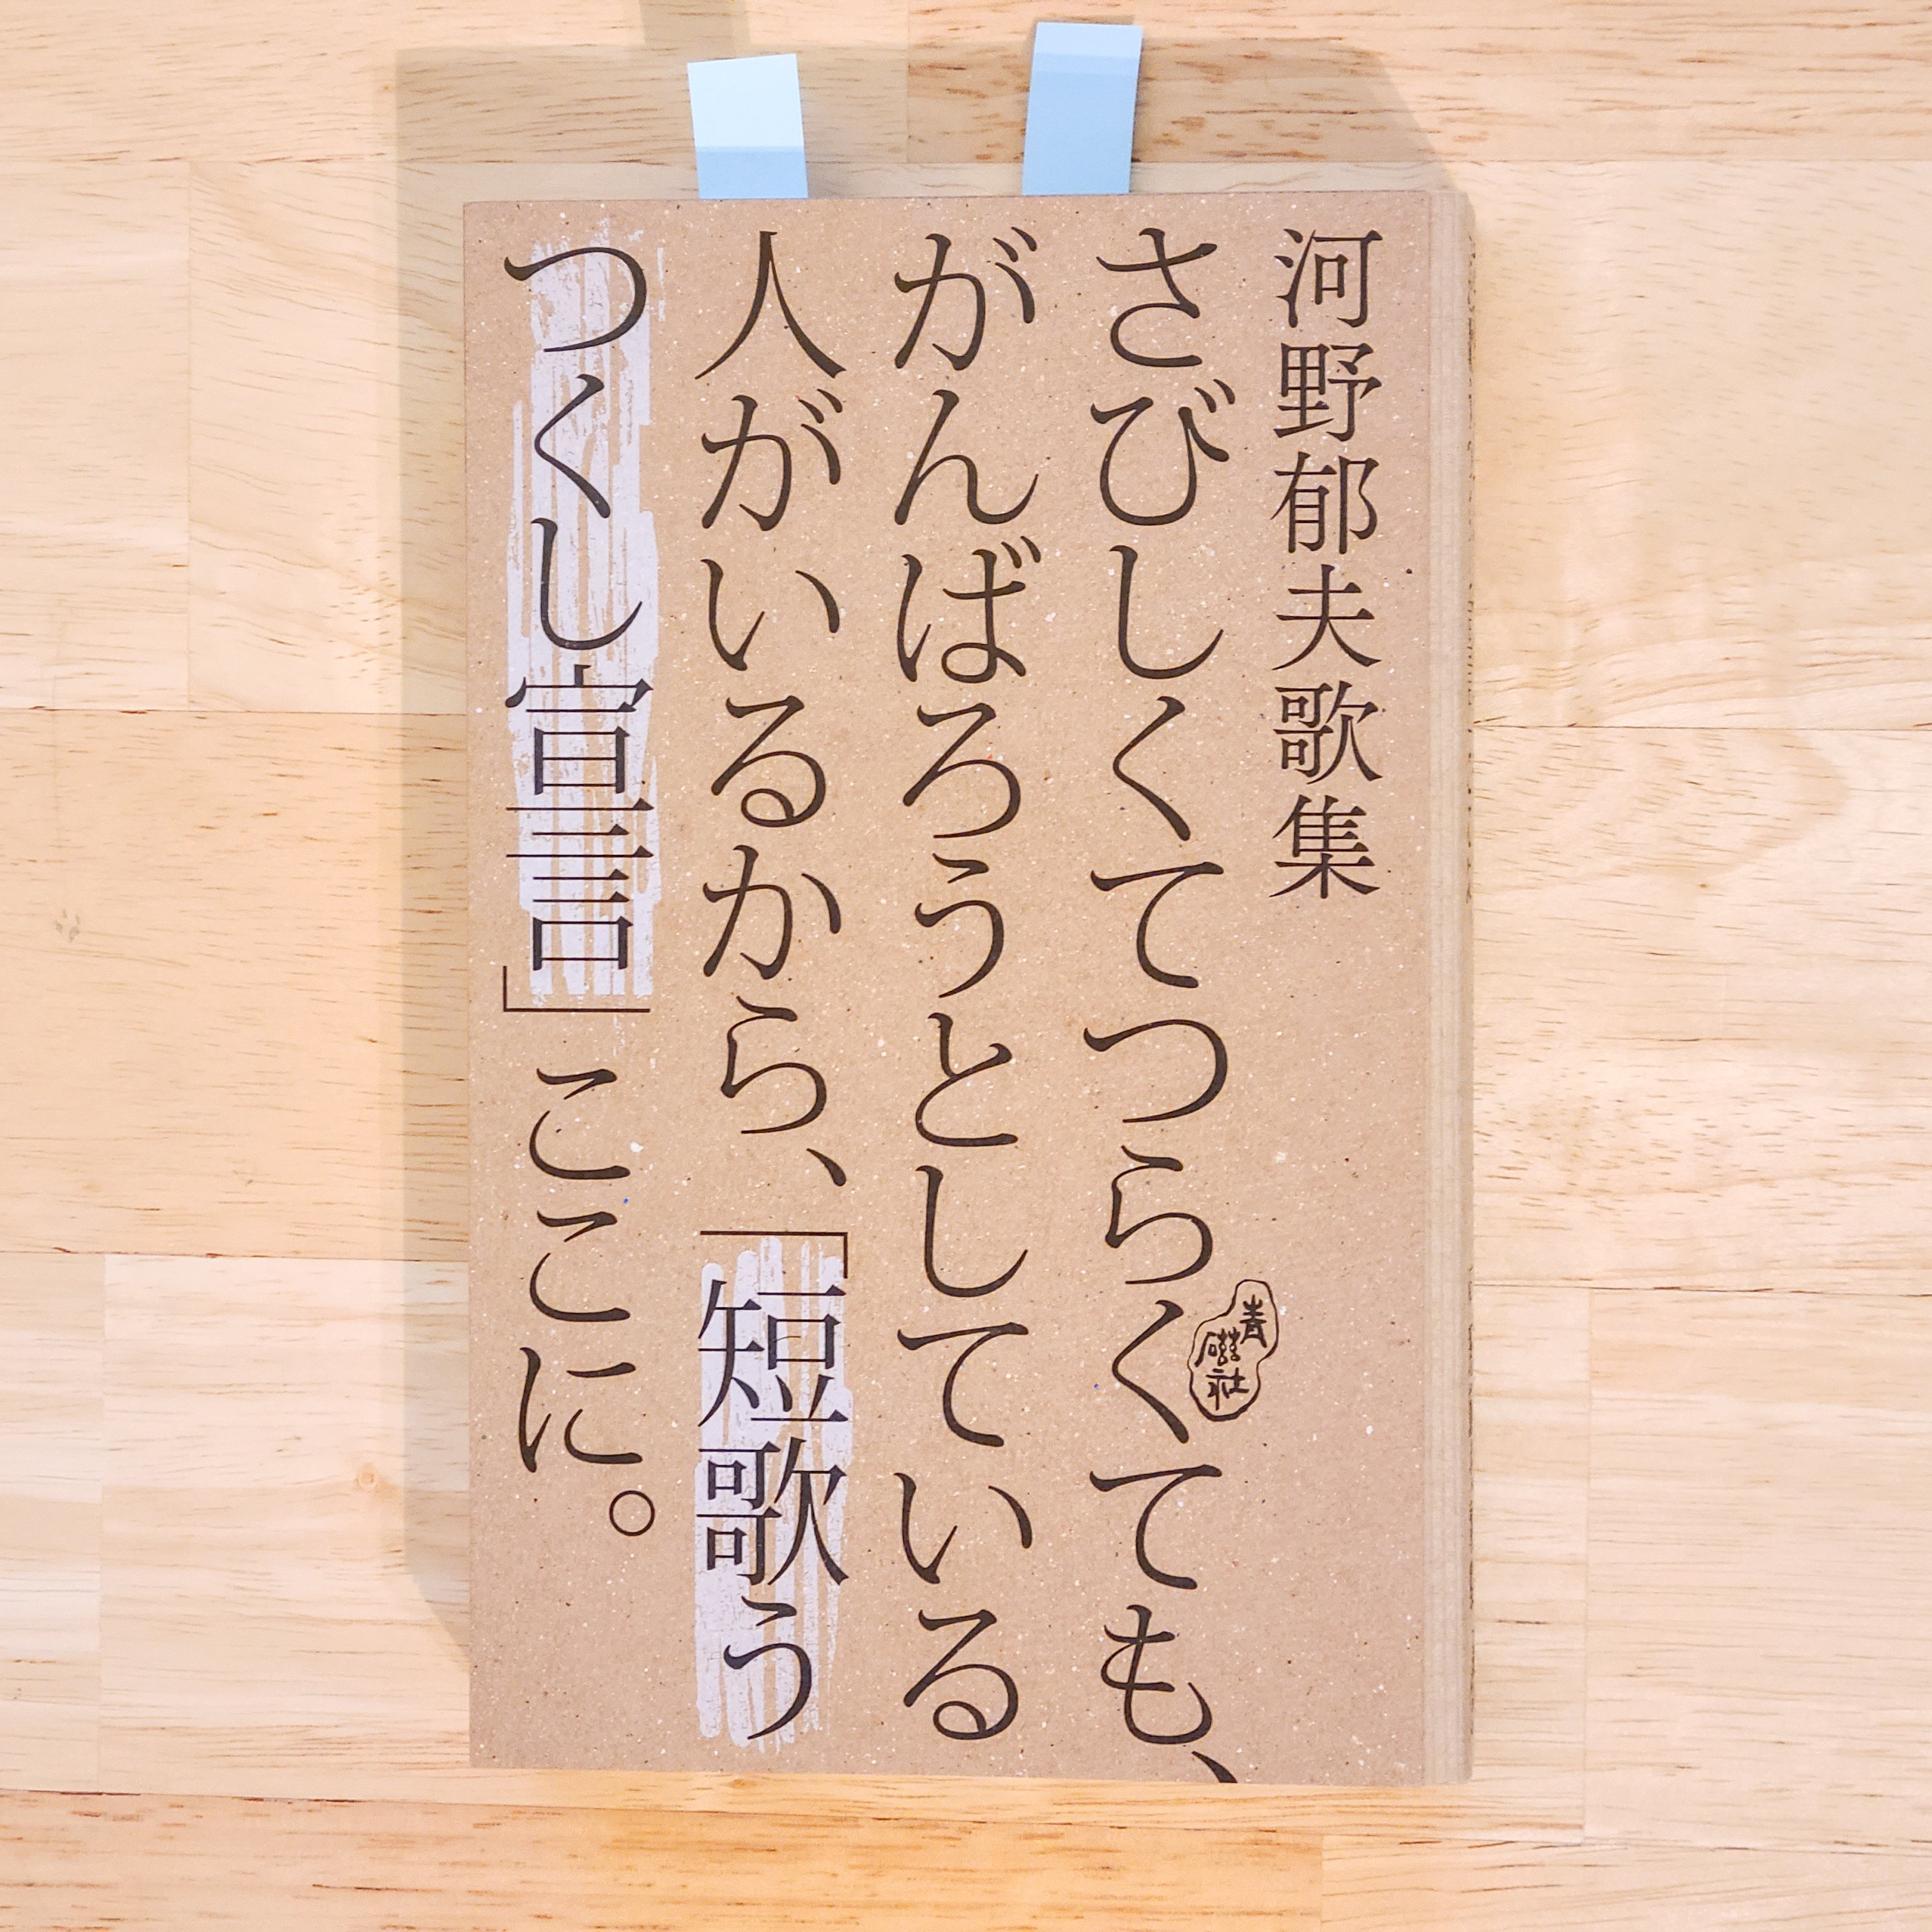 河野郁夫歌集
さびしくてつらくても、
がんばろうとしている
人がいるから、「短歌う
つくし宣言」ここに。
青磁社